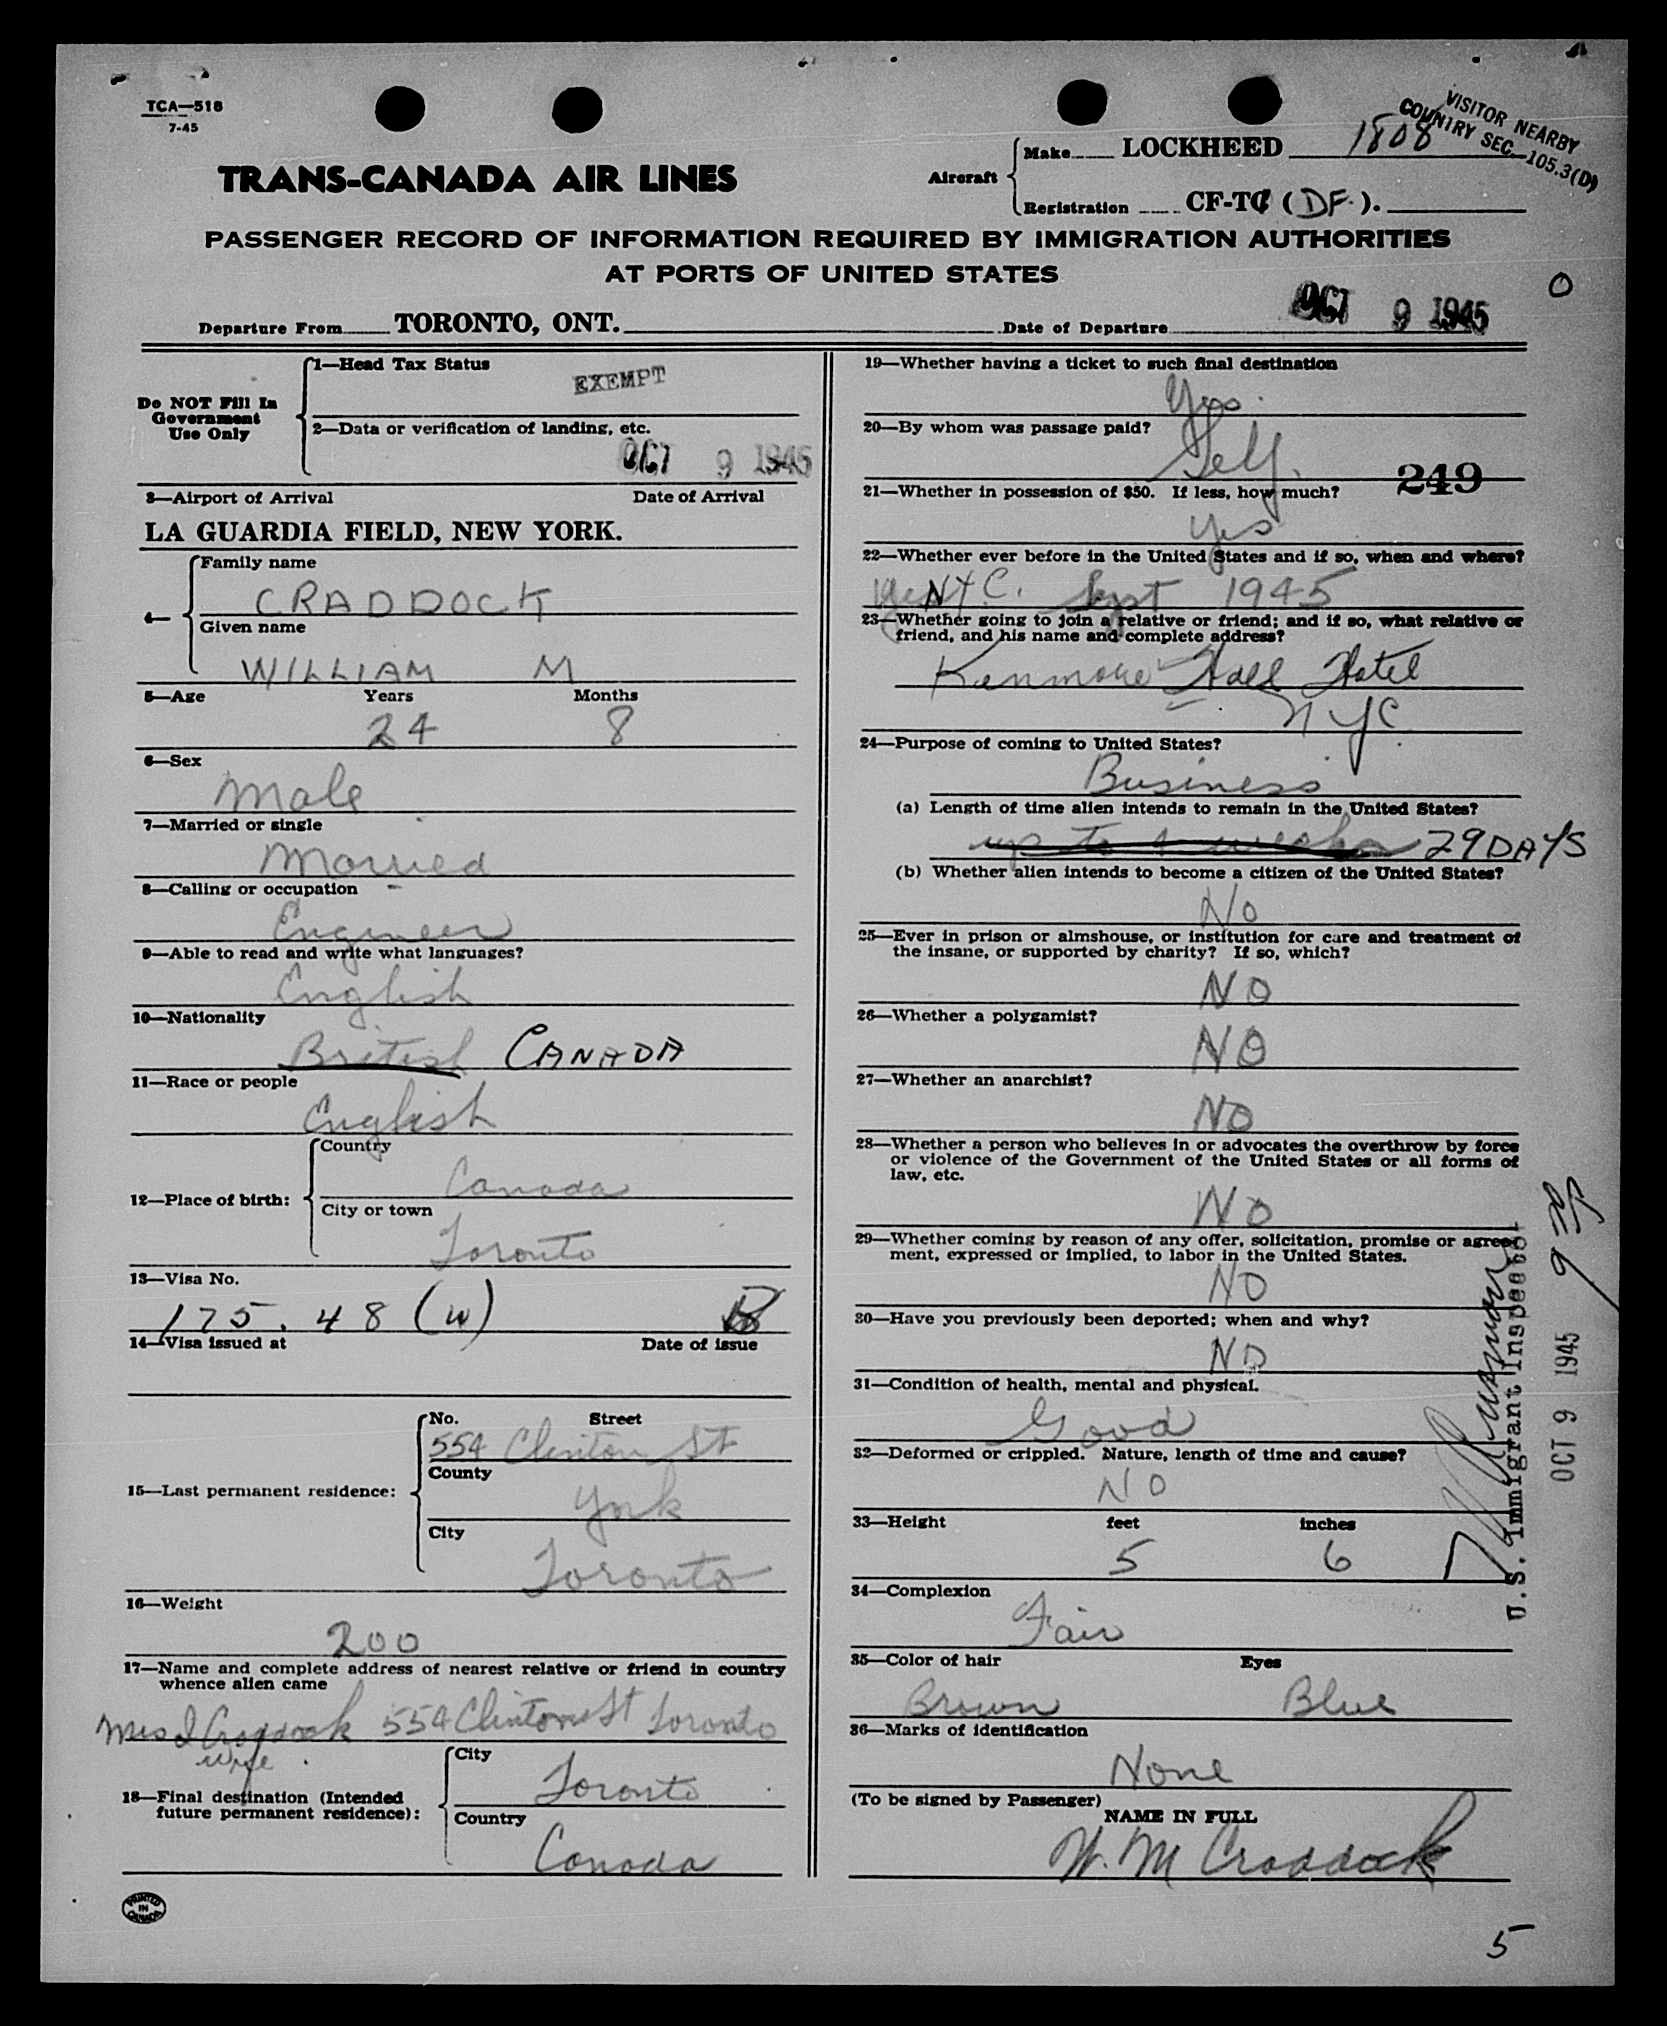 TCA—518
7-45
VISITOR NEARBY
COUNTRY SEC—105.3(D)
TRANS-CANADA AIR LINES
Aircraft
Make LOCKHEED 1808
Registration CF-TC (DF.).
PASSENGER RECORD OF INFORMATION REQUIRED BY IMMIGRATION AUTHORITIES
AT PORTS OF UNITED STATES
0
Departure From TORONTO, ONT. Date of Departure OCT 9 1945
Do NOT Fill In
Government
Use Only
1—Head Tax Status
EXEMPT
2—Data or verification of landing, etc.
OCT 9 1945
3—Airport of Arrival Date of Arrival
LA GUARDIA FIELD, NEW YORK.
4—
Family name
CRADDOCK
Given name
WILLIAM M
5—Age Years Months
24 8
6—Sex
Male
7—Married or single
Married
8—Calling or occupation
Engineer
9—Able to read and write what languages?
English
10—Nationality
British CANADA
11—Race or people
English
12—Place of birth:
Country
Canada
City or town
Toronto
13—Visa No.
175.48 (W)
14—Visa issued at Date of issue
15—Last permanent residence:
No. Street
554 Clinton St
County
York
City
Toronto
16—Weight
200
17—Name and complete address of nearest relative or friend in country
whence alien came
Mrs I Craddock 554 Clinton St Toronto
wife
18—Final destination (Intended
future permanent residence):
City
Toronto
Country
Canada
PRINTED
IN
CANADA
19—Whether having a ticket to such final destination
Yes.
20—By whom was passage paid?
Self.
249
21—Whether in possession of $50. If less, how much?
Yes
22—Whether ever before in the United States and if so, when and where?
Yes NYC. Sept 1945
23—Whether going to join a relative or friend; and if so, what relative or
friend, and his name and complete address?
Kenmore Hall Hotel
NYC
24—Purpose of coming to United States?
Business
(a) Length of time alien intends to remain in the United States?
up to 4 weeks 29 DAYS
(b) Whether alien intends to become a citizen of the United States?
No
25—Ever in prison or almshouse, or institution for care and treatment of
the insane, or supported by charity? If so, which?
NO
26—Whether a polygamist?
NO
27—Whether an anarchist?
NO
28—Whether a person who believes in or advocates the overthrow by force
or violence of the Government of the United States or all forms of
law, etc.
No
29—Whether coming by reason of any offer, solicitation, promise or agree-
ment, expressed or implied, to labor in the United States.
NO
30—Have you previously been deported; when and why?
NO
31—Condition of health, mental and physical.
Good
32—Deformed or crippled. Nature, length of time and cause?
NO
33—Height feet inches
5 6
34—Complexion
Fair
35—Color of hair Eyes
Brown Blue
36—Marks of identification
None
(To be signed by Passenger)
NAME IN FULL
W. M Craddock
U.S. Immigrant Inspector
OCT 9 1945
5